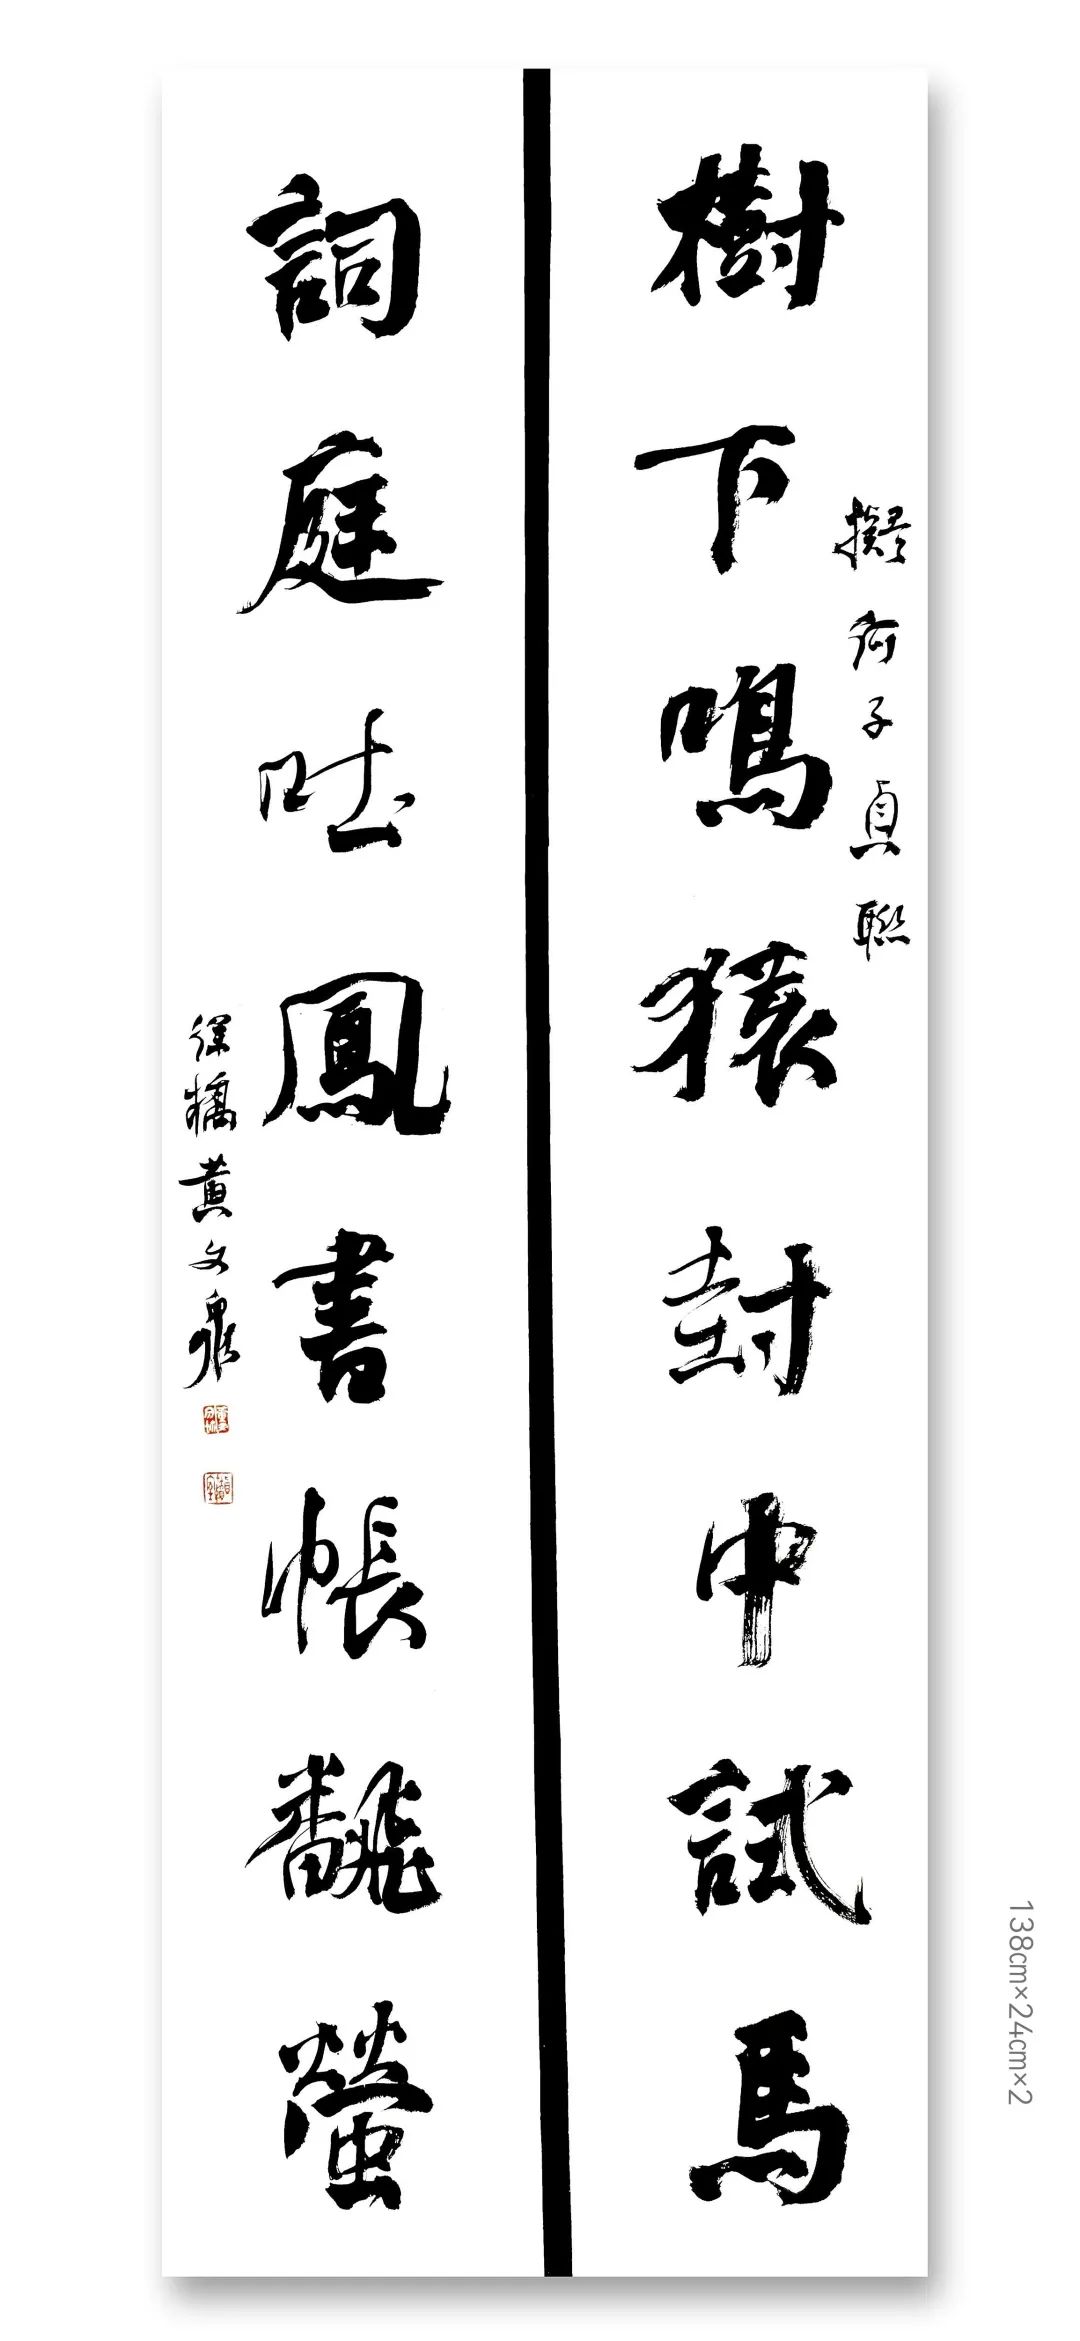 樹下鳴猿封中試馬
擬何子貞聯
詞庭吐鳳書帳飜螢
黃文泉
138cm×24cm×2